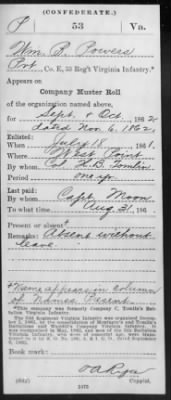 (CONFEDERATE.)
P 53 Va.
Wm. R. Powers
Pvt., Co. E, 53 Reg't Virginia Infantry.*
Appears on
Company Muster Roll
of the organization named above,
for Sept. & Oct., 1862.
dated Nov. 6, 1862.
Enlisted:
When July 18, 1861.
Where West Point
By whom Col. H. B. Tomlin
Period one yr.
Last paid:
By whom Capt. Moon
To what time Aug 31, 186
Present or absent
Remarks: Absent without
leave.
*Name appears in column
of Names Present.
*This company was formerly Company C, Tomlin's Battalion Virginia Infantry.
Book mark:
(642) Copyist.